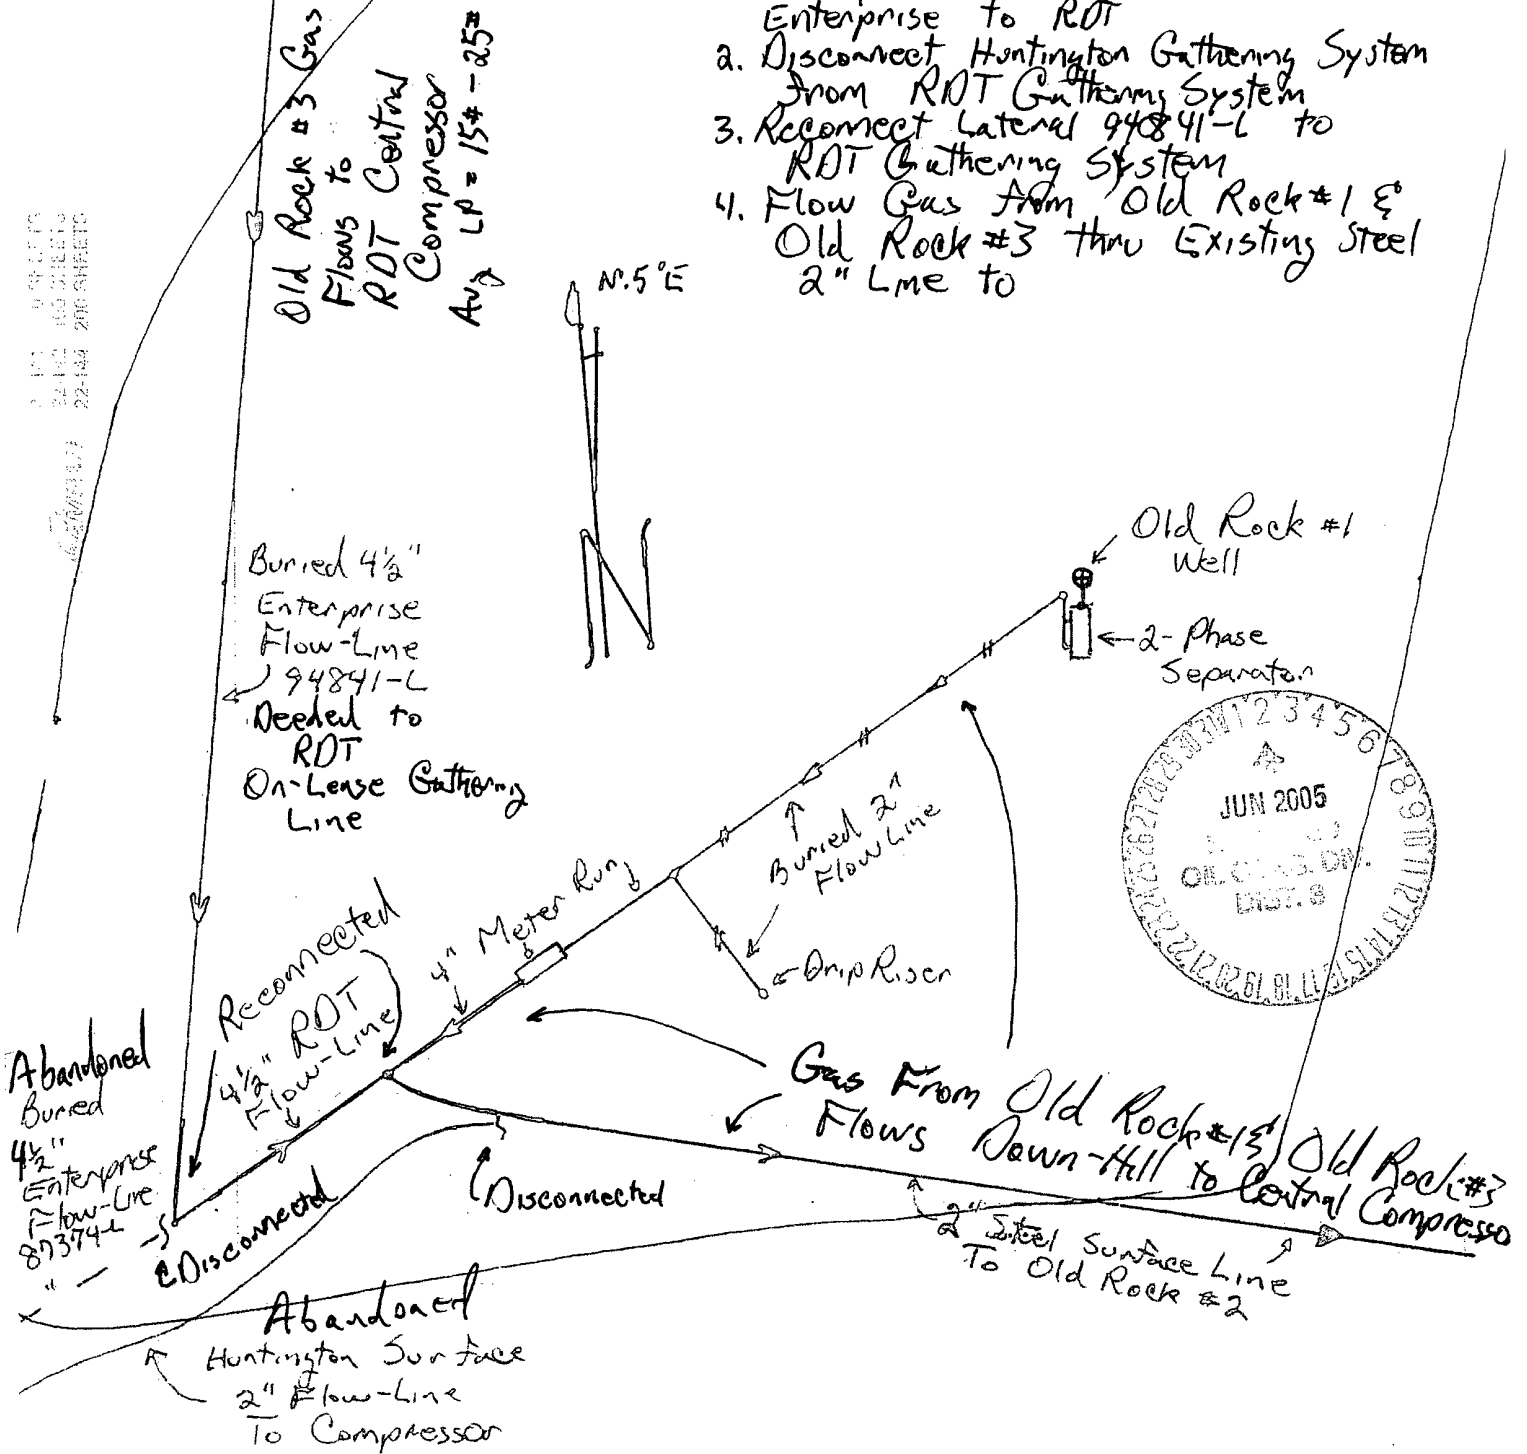 Enterprise to RDT
2. Disconnect Huntington Gathering System
from RDT Gathering System
3. Reconnect Lateral 94841-L to
RDT Gathering System
4. Flow Gas from Old Rock #1 &
Old Rock #3 thru Existing Steel
2" Line to
Old Rock #3 Gas
Flows to
RDT Central
Compressor
Avg LP = 15# - 25#
22-144 200 SHEETS
N.5°E
N
Buried 4½"
Enterprise
Flow-Line
94841-L
Deeded to
RDT
On-Lease Gathering
Line
Old Rock #1
Well
2-Phase
Separator
Buried 2"
Flow Line
Drip Riser
4" Meter Run
Reconnected
4½" RDT
Flow-Line
JUN 2005
OIL CONS. DIV.
DIST. 3
Abandoned
Buried
4½"
Enterprise
Flow-Line
87374-L
Disconnected
Disconnected
Gas From Old Rock #1 & Old Rock #3
Flows Down-Hill to Central Compresso
2" Steel Surface Line
To Old Rock #2
Abandoned
Huntington Surface
2" Flow-Line
To Compressor